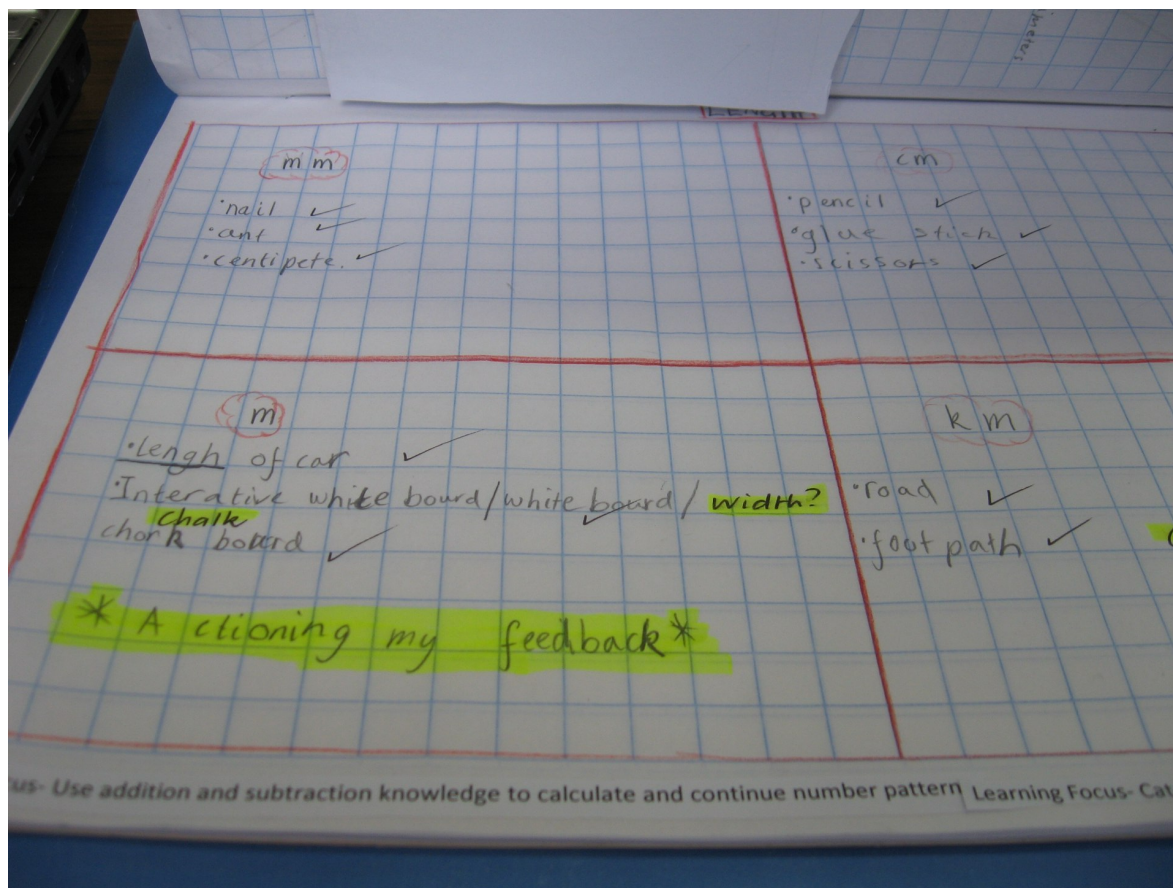 LENGTH
mm
·nail ✓
·ant ✓
·centipete. ✓
cm
·pencil ✓
·glue stick ✓
·scissors ✓
m
·lengh of car ✓
·Interative white board/white board/ width?
chalk
chork board ✓
km
·road ✓
·foot path ✓
* Actioning my feedback *
us- Use addition and subtraction knowledge to calculate and continue number pattern
Learning Focus- Cat